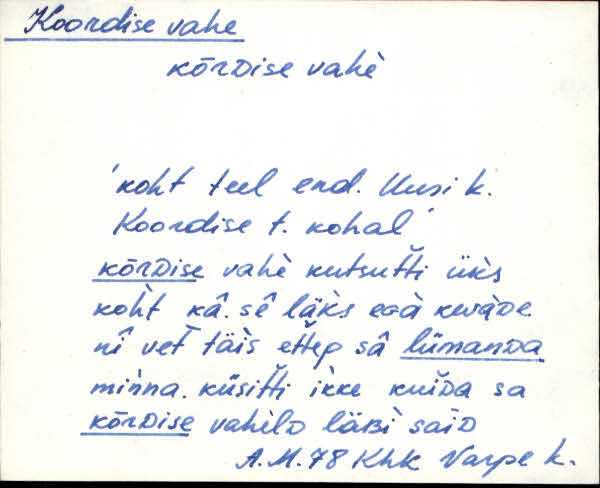 Koordise vahe
kōrDise vahè
'koht teel end. Uusi k.
Koordise t. kohal'
kōrDise vahè kutsutti üks
koht kâ. sê läks
nî vet täis ettep sâ
minna. küsitti ikke kuiDa sa
kōrDise vahèlD läBi saiD
A.M.78 Khk Varpe k.